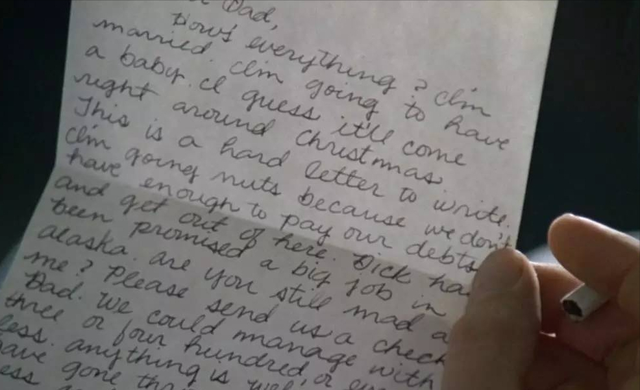 Dad,
How's everything? I'm
married. I'm going to have
a baby. I guess it'll come
right around Christmas.
This is a hard letter to write.
I'm going nuts because we don't
have enough to pay our debts
and get out of here. Dick ha
been promised a big job in
alaska. are you still mad a
me? Please send us a check
Dad. We could manage with
three or four hundred, or
less. anything is
have gone tha
ess